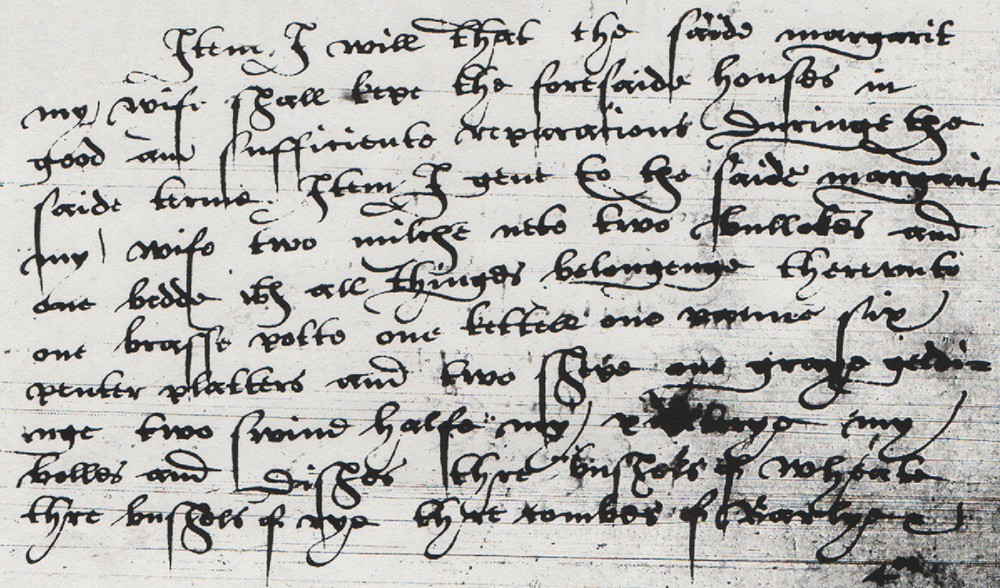 Item I will that the saide margarit
my wife shall kepe the foresaide houses in
good and sufficiente reparations Duringe the
saide terme Item I geve to the saide margarit
my wife two milche nete two bullokes and
one bedde wth all thinges belongenge therevnto
one brasse potte one kettell one panne six
penter platters and two shepe one graye geldi
nge two swine halfe my my
bolles and Dishes thre busshels of wheate
thre busshels of rye thre combes of Barlye